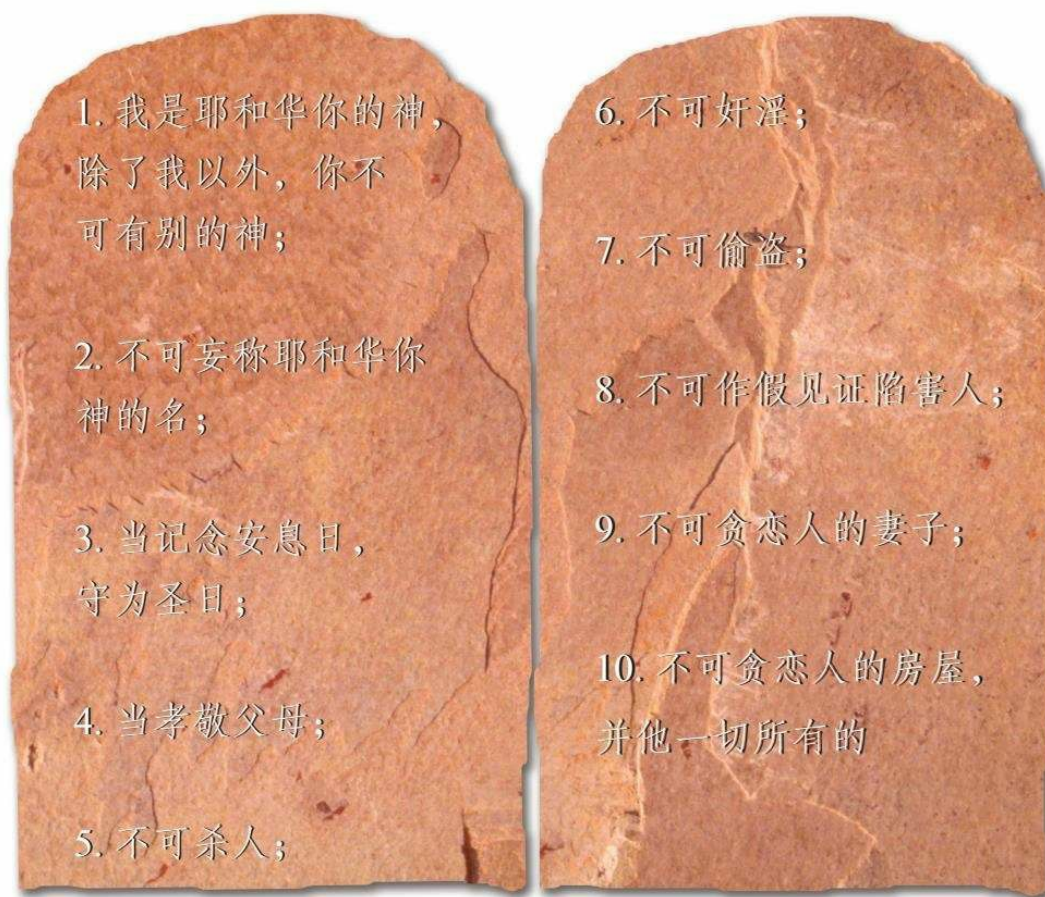 1. 我是耶和华你的神，
除了我以外，你不
可有别的神；
2. 不可妄称耶和华你
神的名；
3. 当记念安息日，
守为圣日；
4. 当孝敬父母；
5. 不可杀人；
6. 不可奸淫；
7. 不可偷盗；
8. 不可作假见证陷害人；
9. 不可贪恋人的妻子；
10. 不可贪恋人的房屋，
并他一切所有的